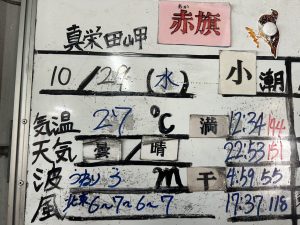 真栄田岬 赤旗
あか
10/29(水) 小潮
気温 27℃ 満 12:34 144
天気 曇 晴 22:53 151
波 うねり 3m 干 4:59 55
風 北東 6〜7〜6〜7 17:37 118